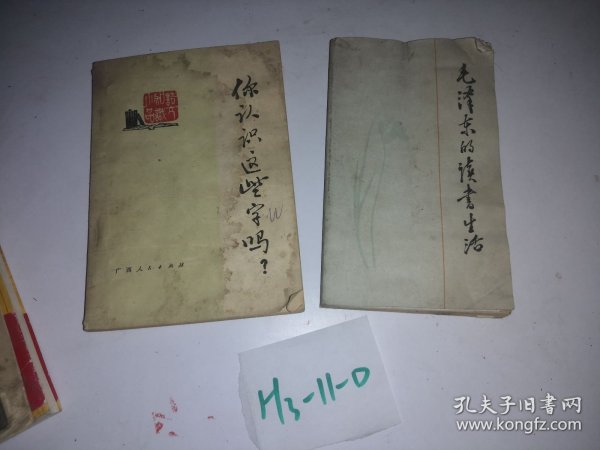 你认识这些字吗?
广西人民出版社
毛泽东的读书生活
H3-11-0
孔夫子旧书网
www.kongfz.com